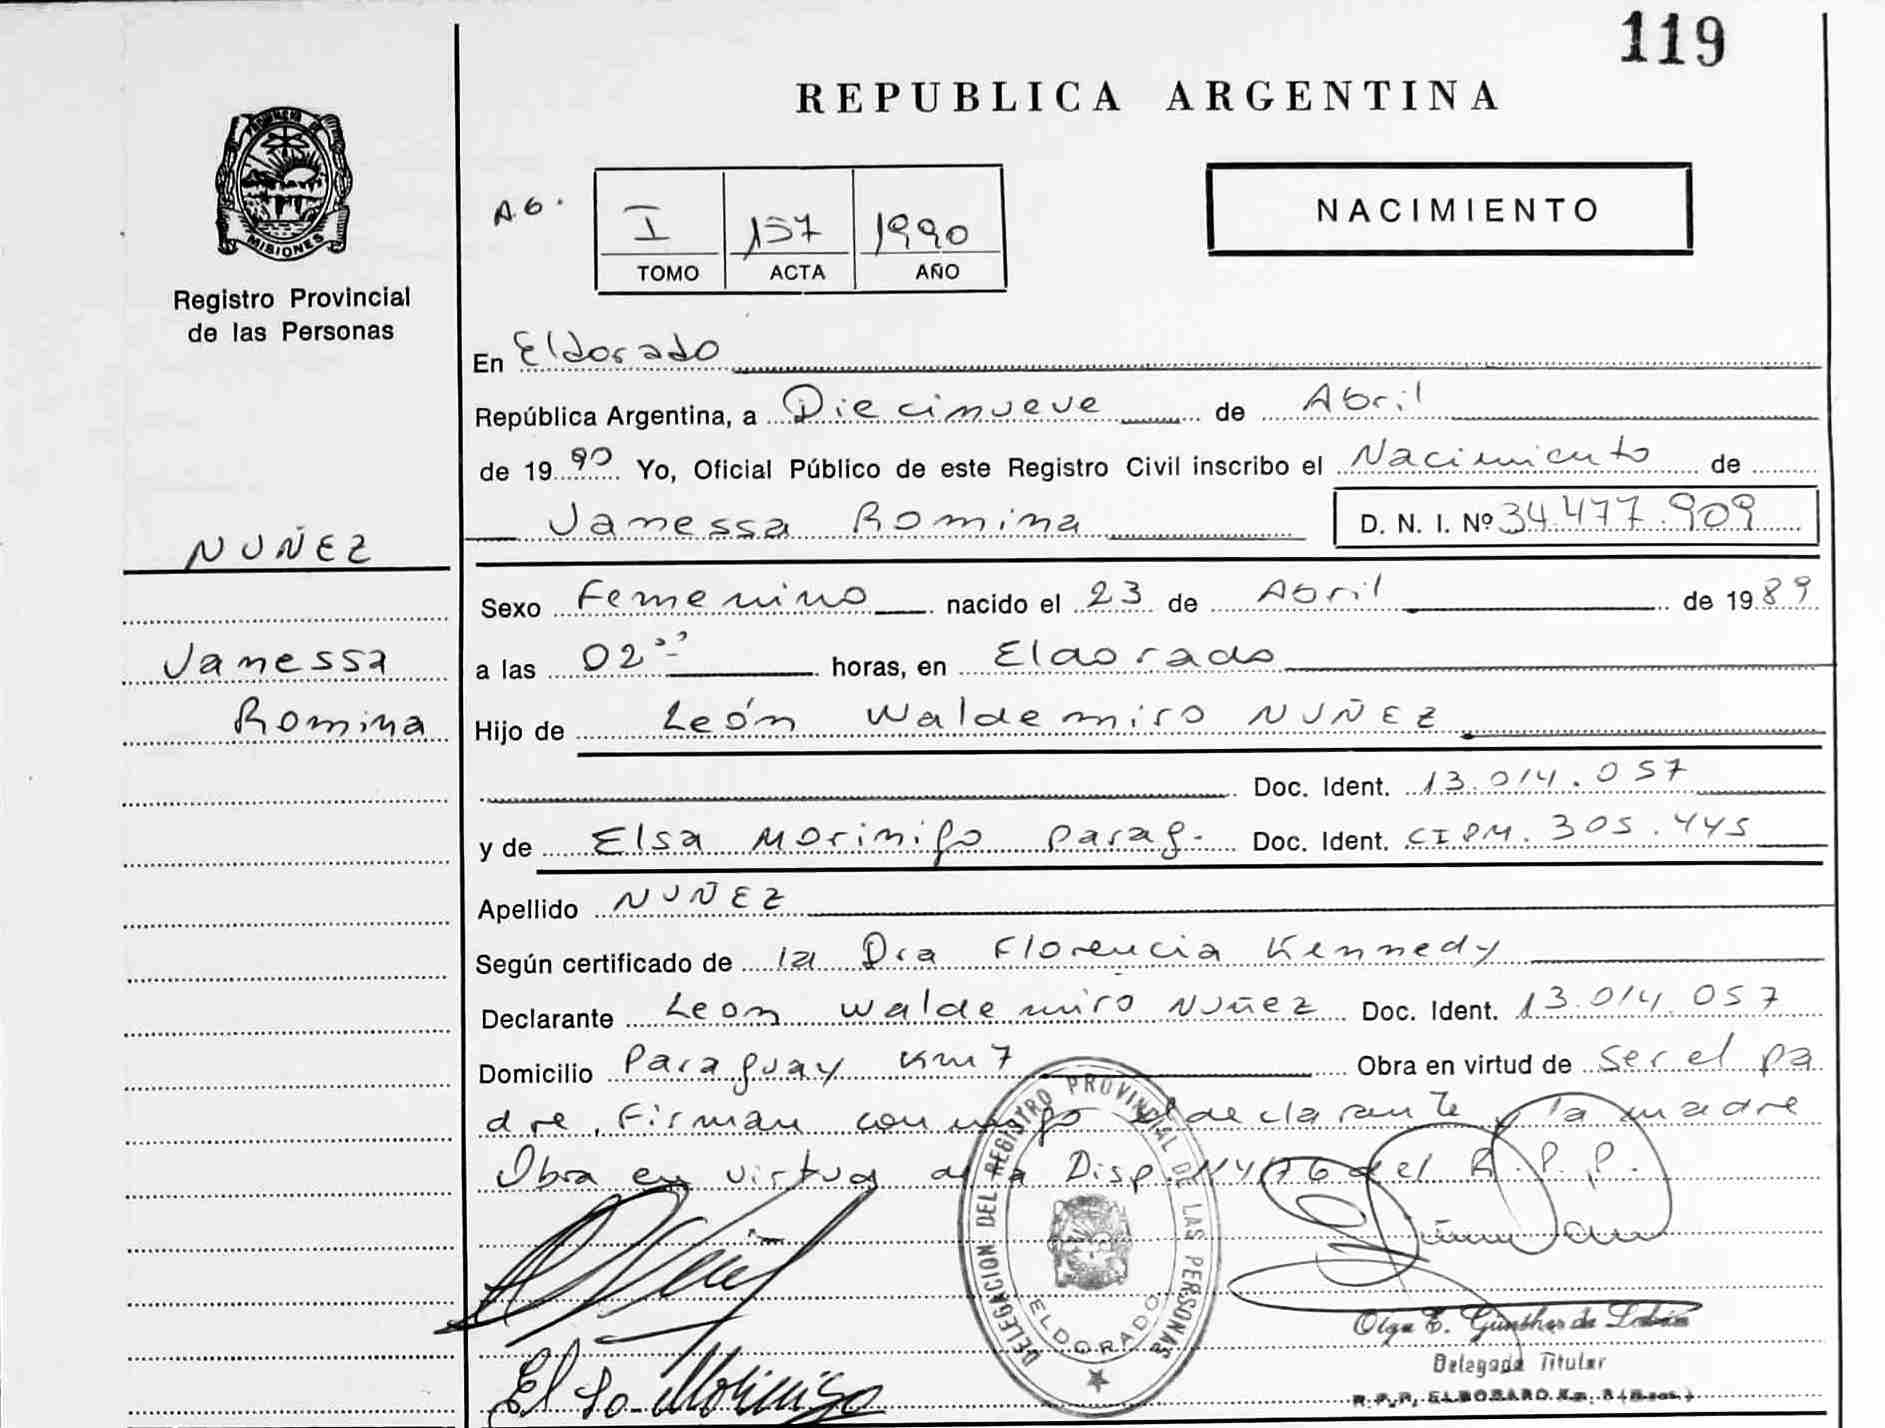 119
REPUBLICA ARGENTINA
PROVINCIA DE
MISIONES
Registro Provincial
de las Personas
A.G.
I 157 1990
TOMO ACTA AÑO
NACIMIENTO
En Eldorado
República Argentina, a Diecinueve de Abril
de 1990 Yo, Oficial Público de este Registro Civil inscribo el Nacimiento de
Vanessa Romina D. N. I. Nº 34.477.909
NUÑEZ
Sexo Femenino nacido el 23 de Abril de 1989
Vanessa
a las 02 horas, en Eldorado
Romina
Hijo de León Waldemiro NUÑEZ
Doc. Ident. 13.014.057
y de Elsa Morinigo parag. Doc. Ident. CIPM. 305.445
Apellido NUÑEZ
Según certificado de la Dra Florencia Kennedy
Declarante Leon Waldemiro Nuñez Doc. Ident. 13.014.057
Domicilio Paraguay Km 7 Obra en virtud de Ser el pa
dre, Firman conmigo el declarante y la madre
Obra en virtud de la Disp. 14/76 del R.P.P.
DELEGACION DEL REGISTRO PROVINCIAL DE LAS PERSONAS
ELDORADO
Olga E. Günther de
Delegada Titular
R.P.P. ELDORADO Km.
Morinigo